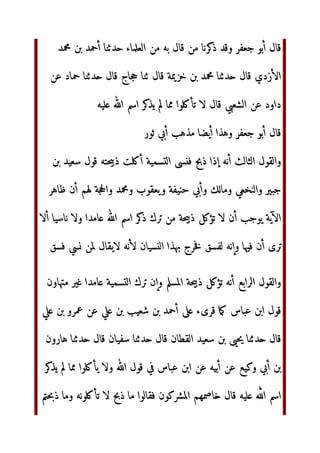 قال أبو جعفر وقد ذكرنا من قال به من العلماء حدثنا أحمد بن محمد
الأزدي قال حدثنا محمد بن خزيمة قال ثنا حجاج قال حدثنا حماد عن
داود عن الشعبي قال لا تأكلوا مما لم يذكر اسم الله عليه
قال أبو جعفر وهذا أيضا مذهب أبي ثور
والقول الثالث أنه إذا ذبح فنسى التسمية أكلت ذبيحته قول سعيد بن
جبير والنخعي ومالك وأبي حنيفة ويعقوب ومحمد والحجة لهم أن ظاهر
الآية يوجب أن لا تؤكل ذبيحة من ترك ذكر اسم الله عامدا ولا ناسيا ألا
ترى أن فيها وإنه لفسق فخرج بهذا النسيان لأنه لايقال لمن نسي فسق
والقول الرابع أنه تؤكل ذبيحة المسلم وإن ترك التسمية عامدا غير متهاون
قول ابن عباس كما قرىء على أحمد بن شعيب بن علي عن عمرو بن علي
قال حدثنا يحيى بن سعيد القطان قال حدثنا سفيان قال حدثنا هارون
بن أبي وكيع عن أبيه عن ابن عباس في قول الله ولا يأكلوا مما لم يذكر
اسم الله عليه قال خاصمهم المشركون فقالوا ما ذبح لا تأكلونه وما ذبحتم